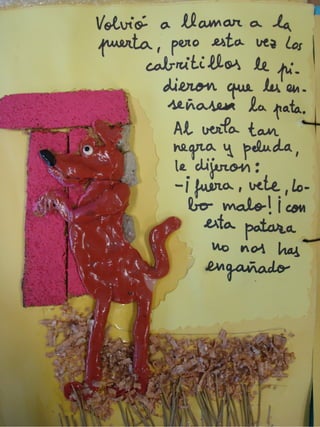 Volvió a llamar a la
puerta, pero esta vez los
cabritillos le pi-
dieron que les en-
señasen la pata.
Al verla tan
negra y peluda,
le dijeron:
-¡fuera, vete, lo-
bo malo! ¡con
esta pataza
no nos has
engañado